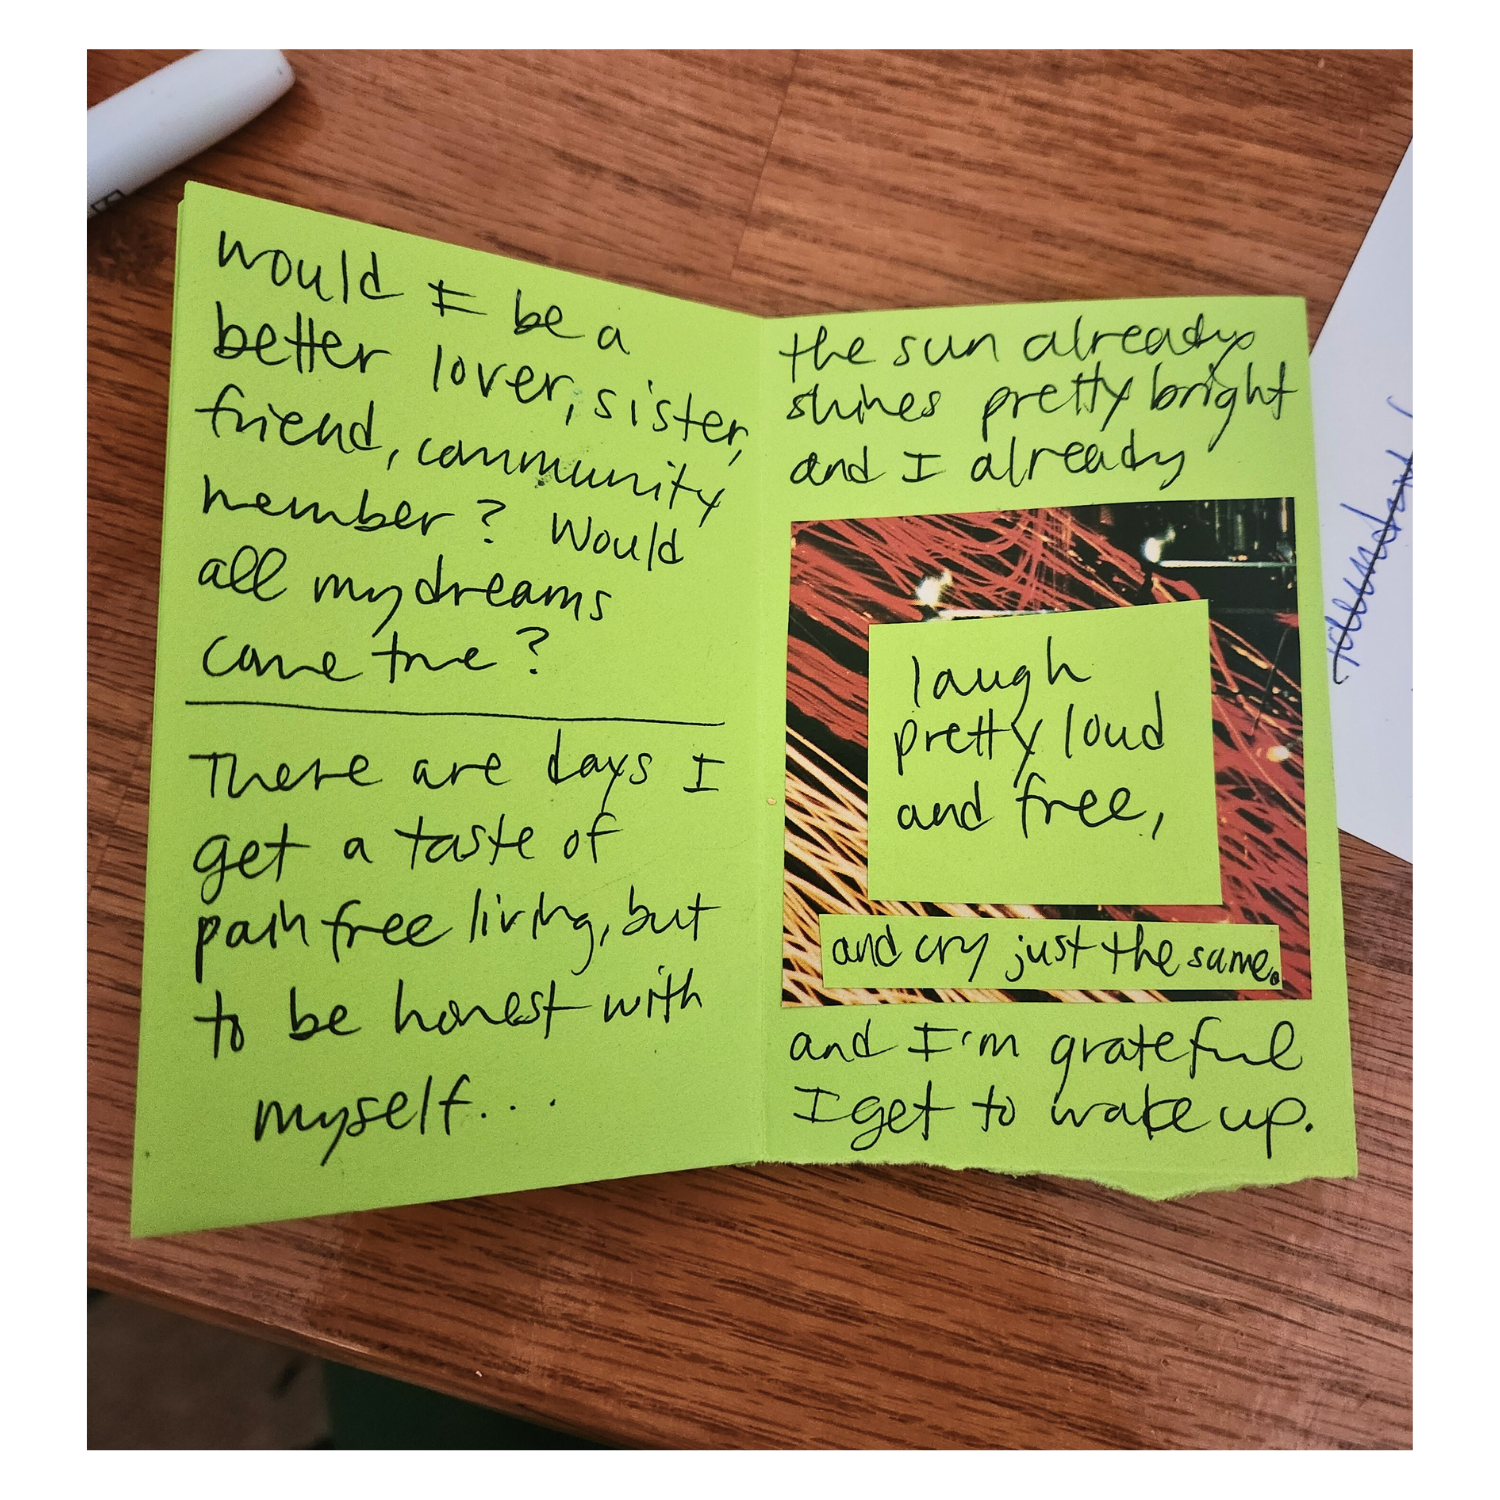 would I be a
better lover, sister,
friend, community
member? Would
all my dreams
come true?
There are days I
get a taste of
pain free living, but
to be honest with
myself...
the sun already
shines pretty bright
and I already
laugh
pretty loud
and free,
and cry just the same.
and I'm grateful
I get to wake up.